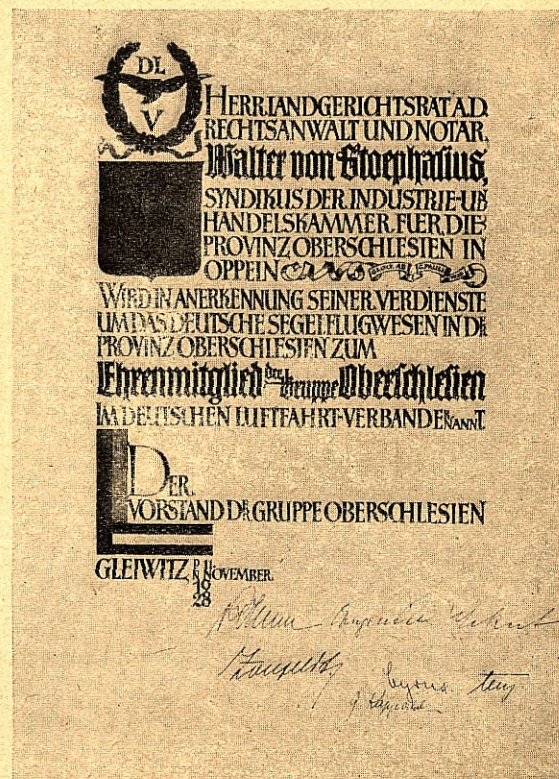 DL
V
HERR LANDGERICHTSRAT A.D.
RECHTSANWALT UND NOTAR
Walter von Stoephasius,
SYNDIKUS DER INDUSTRIE-UND
HANDELSKAMMER FUER DIE
PROVINZ OBERSCHLESIEN IN
OPPELN
WIRD IN ANERKENNUNG SEINER VERDIENSTE
UM DAS DEUTSCHE SEGELFLUGWESEN IN DER
PROVINZ OBERSCHLESIEN ZUM
Ehrenmitglied der Gruppe Oberschlesien
IM DEUTSCHEN LUFTFAHRT-VERBANDE ERNANNT.
DER
VORSTAND DER GRUPPE OBERSCHLESIEN
GLEIWITZ NOVEMBER
19
28